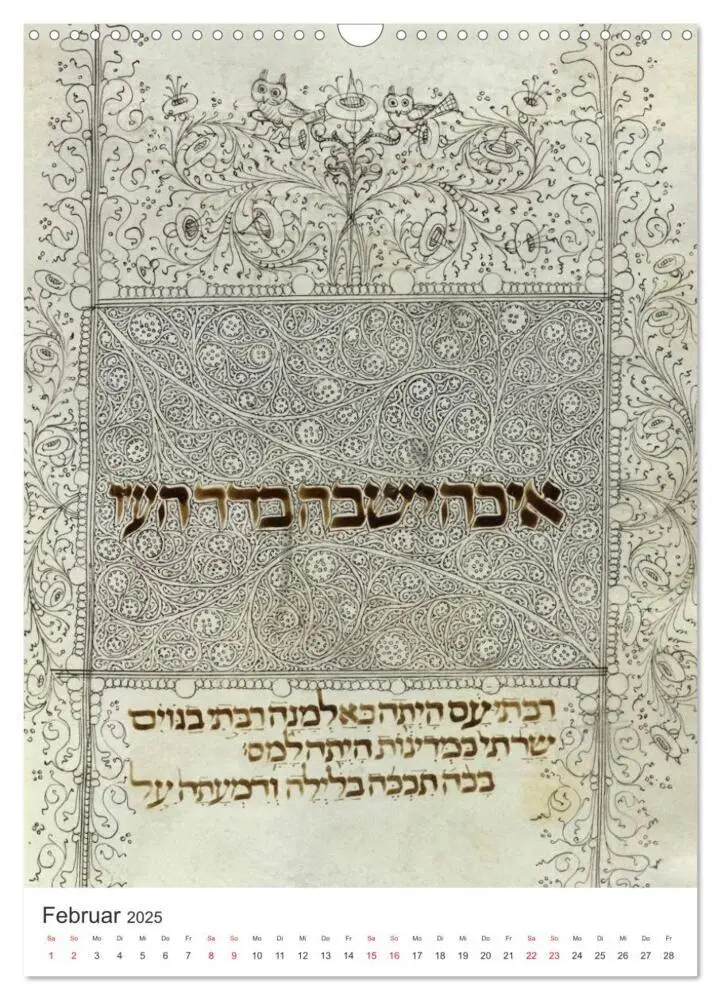 איכה ישבה בדד העיר
רבתי עם היתה כאלמנה רבתי בגוים
שרתי במדינות היתה למס׃
בכה תבכה בלילה ודמעתה על
Februar 2025
Sa So Mo Di Mi Do Fr Sa So Mo Di Mi Do Fr Sa So Mo Di Mi Do Fr Sa So Mo Di Mi Do Fr
1 2 3 4 5 6 7 8 9 10 11 12 13 14 15 16 17 18 19 20 21 22 23 24 25 26 27 28